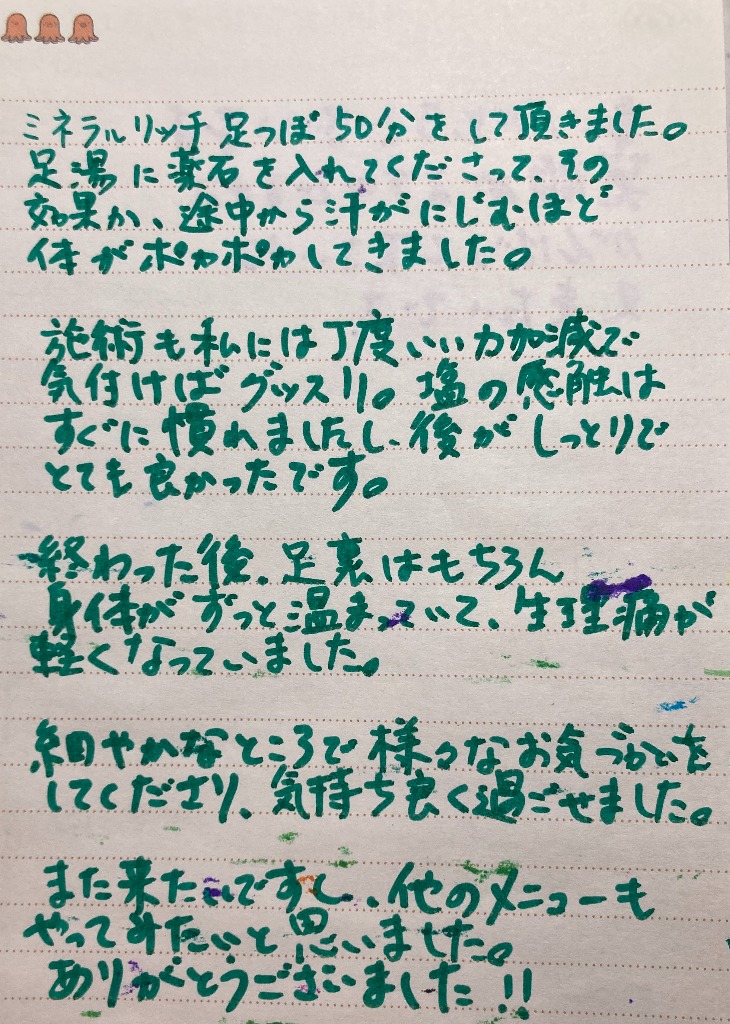 ミネラルリッチ足つぼ50分をして頂きました。
足湯に薬石を入れてくださって、その
効果か、途中から汗がにじむほど
体がポカポカしてきました。
施術も私には丁度いい力加減で
気付けばグッスリ。塩の感触は
すぐに慣れましたし、後がしっとりで
とても良かったです。
終わった後、足裏はもちろん
身体がずっと温まっていて、生理痛が
軽くなっていました。
細やかなところで様々なお気づかいを
してくださり、気持ち良く過ごせました。
また来たいですし、他のメニューも
やってみたいと思いました。
ありがとうございました!!